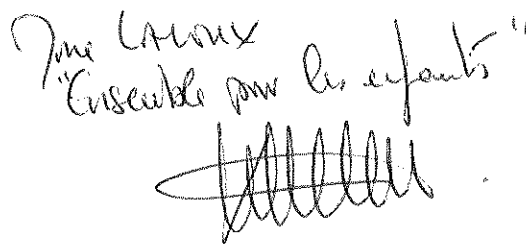 Mme LALOUX
"Ensemble pour les enfants"